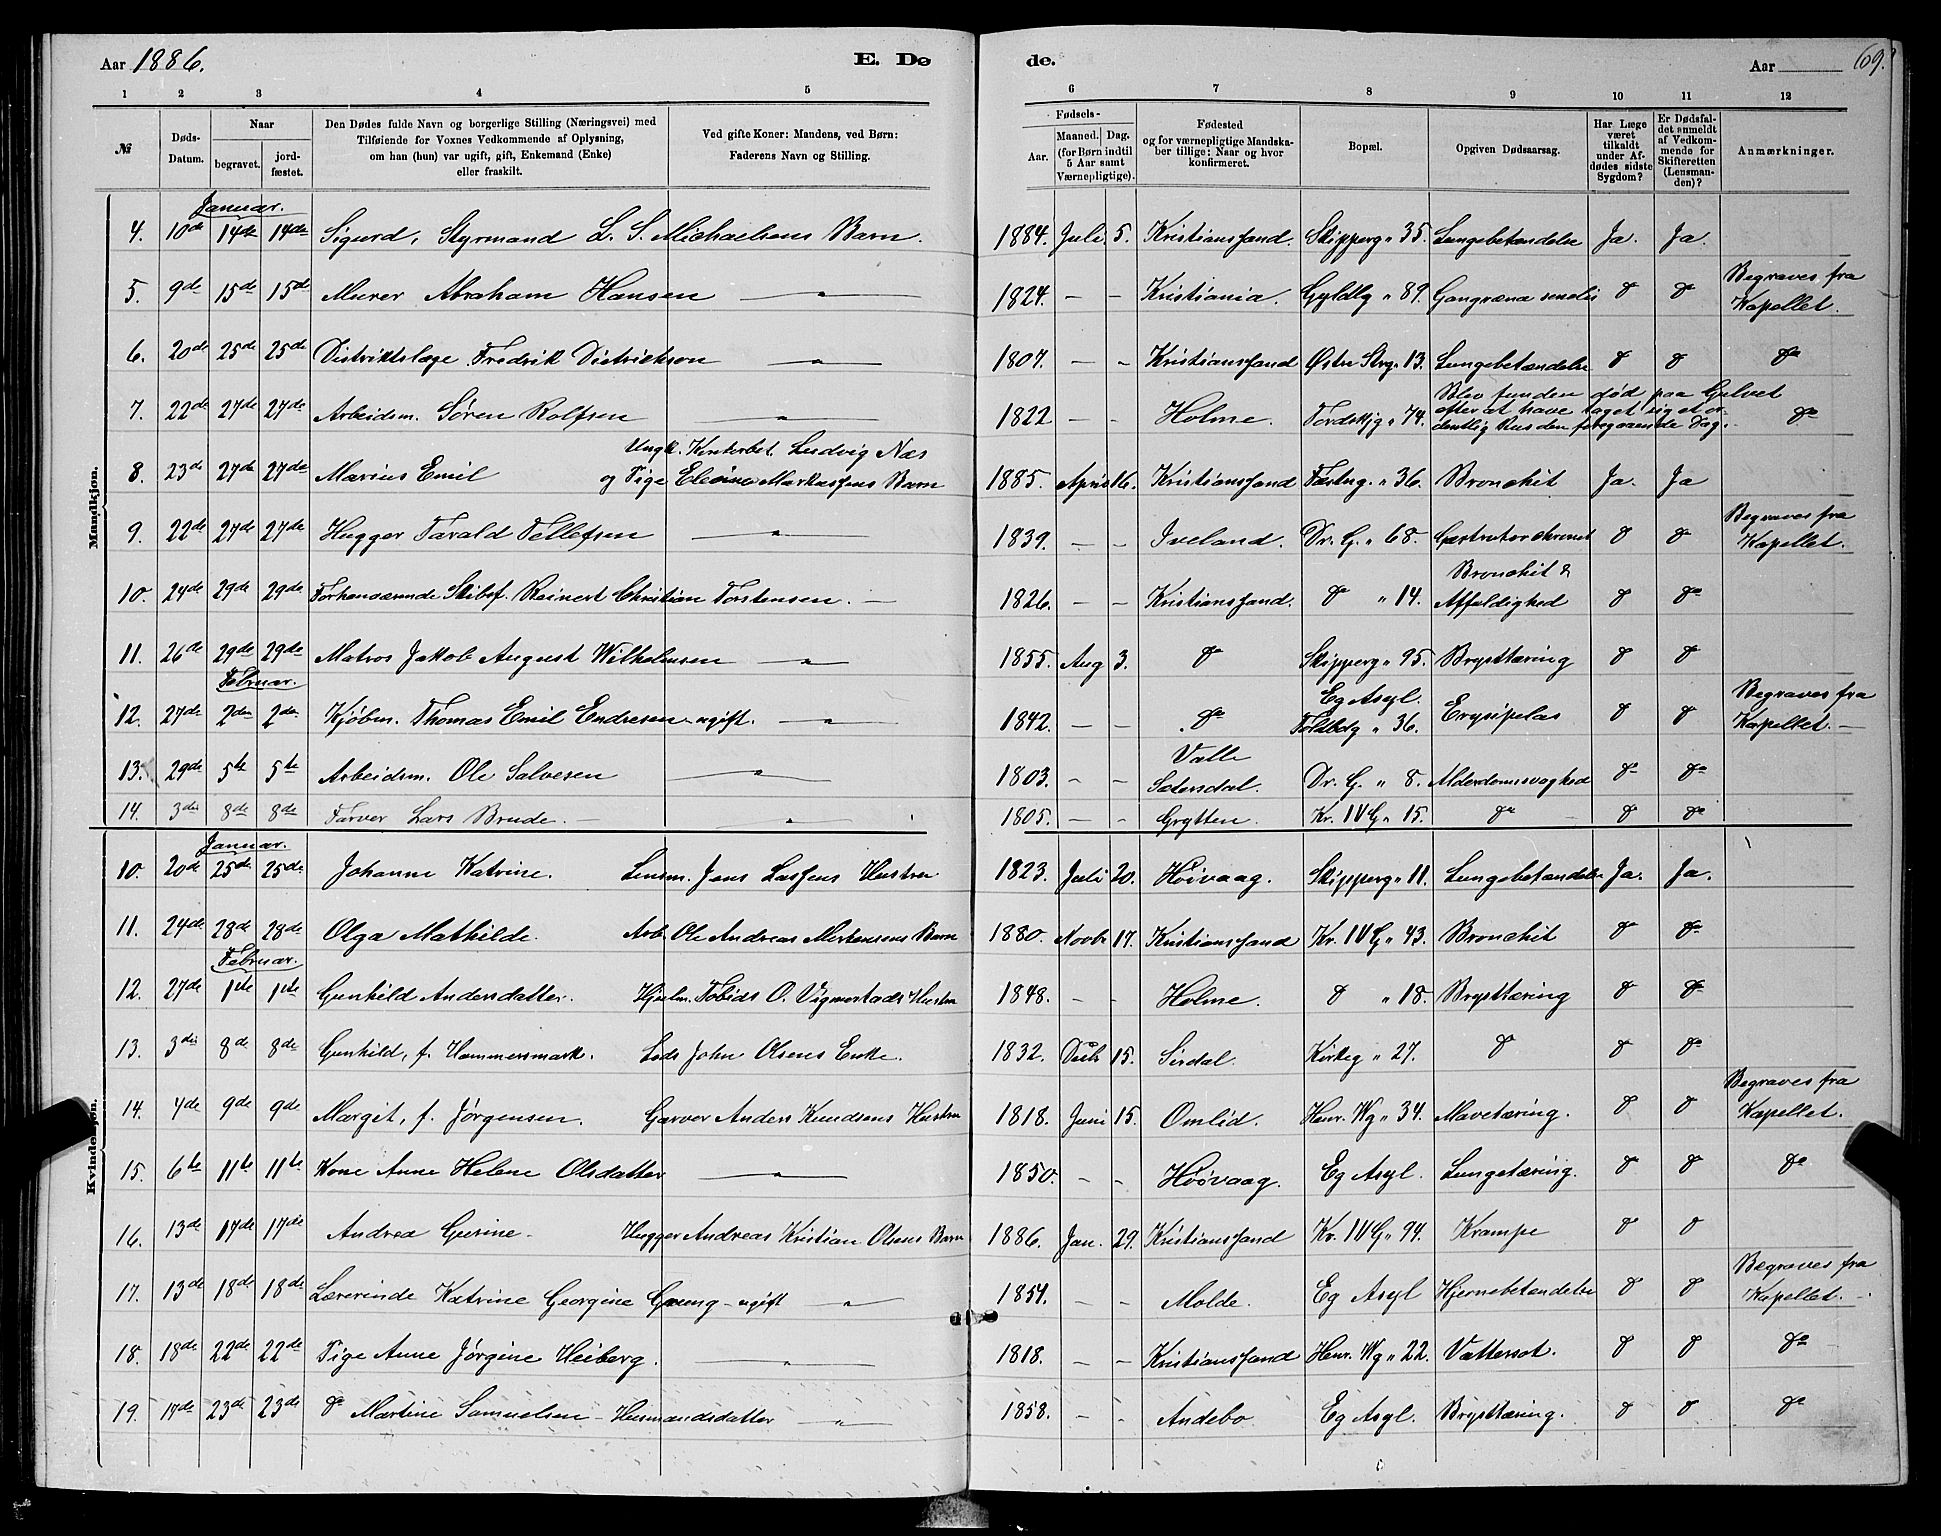 Aar 1886. E. Dø de. Aar 69.
1 2 3 4 5 6 7 8 9 10 11 12
№ Døds-Datum. Naar begravet. jordfæstet. Den Dødes fulde Navn og borgerlige Stilling (Næringsvei) med Tilføiende for Voxnes Vedkommende af Oplysning, om han (hun) var ugift, gift, Enkemand (Enke) eller fraskilt. Ved gifte Koner: Mandens, ved Børn: Faderens Navn og Stilling. Fødsels- Aar. Maaned. Dag. (for Børn indtil 5 Aar samt Værnepligtige). Fødested og for værnepligtige Mandskaber tillige: Naar og hvor konfirmeret. Bopæl. Opgiven Dødsaarsag. Har Læge været tilkaldt under Afdødes sidste Sygdom? Er Dødsfaldet anmeldt af Vedkommende for Skifteretten (Lensmanden)? Anmærkninger.
Mandkjøn.
Januar.
4. 10de 14de 14de Sigurd, Styrmand L. S. Michaelsens Barn. 1884. Juli 5. Kristianssand. Skipperg „ 35. Lungebetændelse Ja. Ja.
5. 9de 15de 15de Murer Abraham Hansen — „ — 1824. — — Kristiania. Gyldlg „ 89. Gangræna senelis do do Begraves fra Kapellet.
6. 20de 25de 25de Distriktslæge Fredrik Districhson — „ — 1807. — - Kristianssand Østre Strg „ 13. Lungebetændelse do do do
7. 22de 27de 27de Arbeidsm. Søren Rolfsen — „ — 1822 — - Holme. Tordskjg „ 74. Blev funden død paa Gulvet efter at have taget sig et ordentlig Rus den foregaaende Dag. do
8. 23de 27de 27de Marius Emil Ungk. Kunterbet. Ludvig Næs og Pige Eleine Markussens Barn 1885. April 16. Kristianssand Fæstng. „ 36. Bronchit Ja. Ja
9. 22de 27de 27de Hugger Tarald Tellefsen — „ — 1839. — - Iveland. Dr. G. „ 68. do do Begraves fra Kapellet.
10. 24de 29de 29de Forhenværende Skibsf. Reinert Christian Torstensen. — 1826. — - Kristianssand. do „ 14. Bronchit & Affældighed do do
11. 26de 29de 29de Matros Jakob August Wilhelmsen — „ — 1855. Aug 3. do Skipperg „ 95. Brysttæring do do
Februar.
12. 27de 2den 2den Kjøbm. Thomas Emil Endresen - ugift. — „ — 1842. — - do Eg Asyl. Toldbodg „ 36. Erysipelas do do Begraves fra Kapellet. —
13. 29de 5te 5te Arbeidsm. Ole Salvesen — „ — 1803. - - Valle Sætersdal. Dr. G. „ 8. Alderdomssvaghed do do
14. 3die 8de 8de Farver Lars Brude. — — „ — 1805. — - Grytten. Kr. IV G „ 15. do do do
Kvindekjøn.
Januar.
10. 20de 25de 25de Johanne Katrine. Lensm. Jens Lassens Hustru 1823. Juli 20. Høivaag. Skipperg „ 11. Lungebetændelse Ja. Ja.
11. 24de 28de 28de Olga Mathilde. Arb. Ole Andreas Mortensens Barn 1880. Novbr 17. Kristianssand Kr. IV G „ 43. Bronchit do do
Februar.
12. 27de 1ste 1ste Gunhild Andersdatter. Hjulm. Tobias O. Vigmostads Hustru 1848. - - Holme. do „ 18. Brysttæring do do
13. 3die 8de 8de Gunhild, f. Hammersmark. Lods John Olsens Enke. 1832. Decbr 15. Sirdal. Kirkeg „ 27. do do do
14. 7de 9de 9de Margit, f. Jørgensen. Garver Anders Knudsens Hustru 1818. Juni 15. Omlid. Henr. Wg „ 34. Mavetæring. do do Begraves fra Kapellet.
15. 6te 11te 11te Kone Anne Helene Olsdatter — „ — 1850. - - Høivaag. Eg Asyl. Lungetæring. do do do
16. 13de 17de 17de Andrea Gurine. Hugger Andreas Kristian Olsens Barn 1886. Jan. 29. Kristianssand Kr. IV G „ 94. Krampe do do
17. 13de 18de 18de Lærerinde Katrine Georgine Grung - ugift „ — 1854. - - Molde. Eg Asyl Hjernebetændelse do do Begraves fra Kapellet.
18. 18de 22de 22de Pige Anne Jørgine Heiberg. — „ — 1818. - - Kristianssand Henr. Wg „ 22. Vattersot. do do do
19. 17de 23de 23de do Martine Samuelsen - Husmandsdatter — „ — 1858. - - Andebo Eg Asyl. Brysttæring. do do do